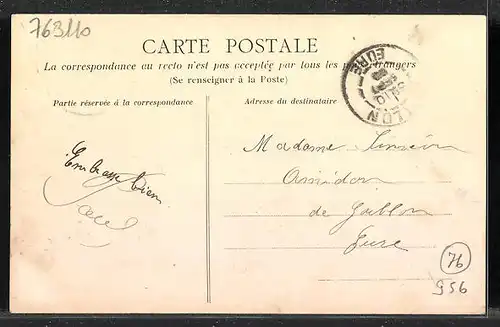 763110
CARTE POSTALE
La correspondance au recto n'est pas acceptée par tous les pays étrangers
(Se renseigner à la Poste)
Partie réservée à la correspondance
Adresse du destinataire
EURE
Madame
Embrasse bien
de Gaillon
Eure
76
956